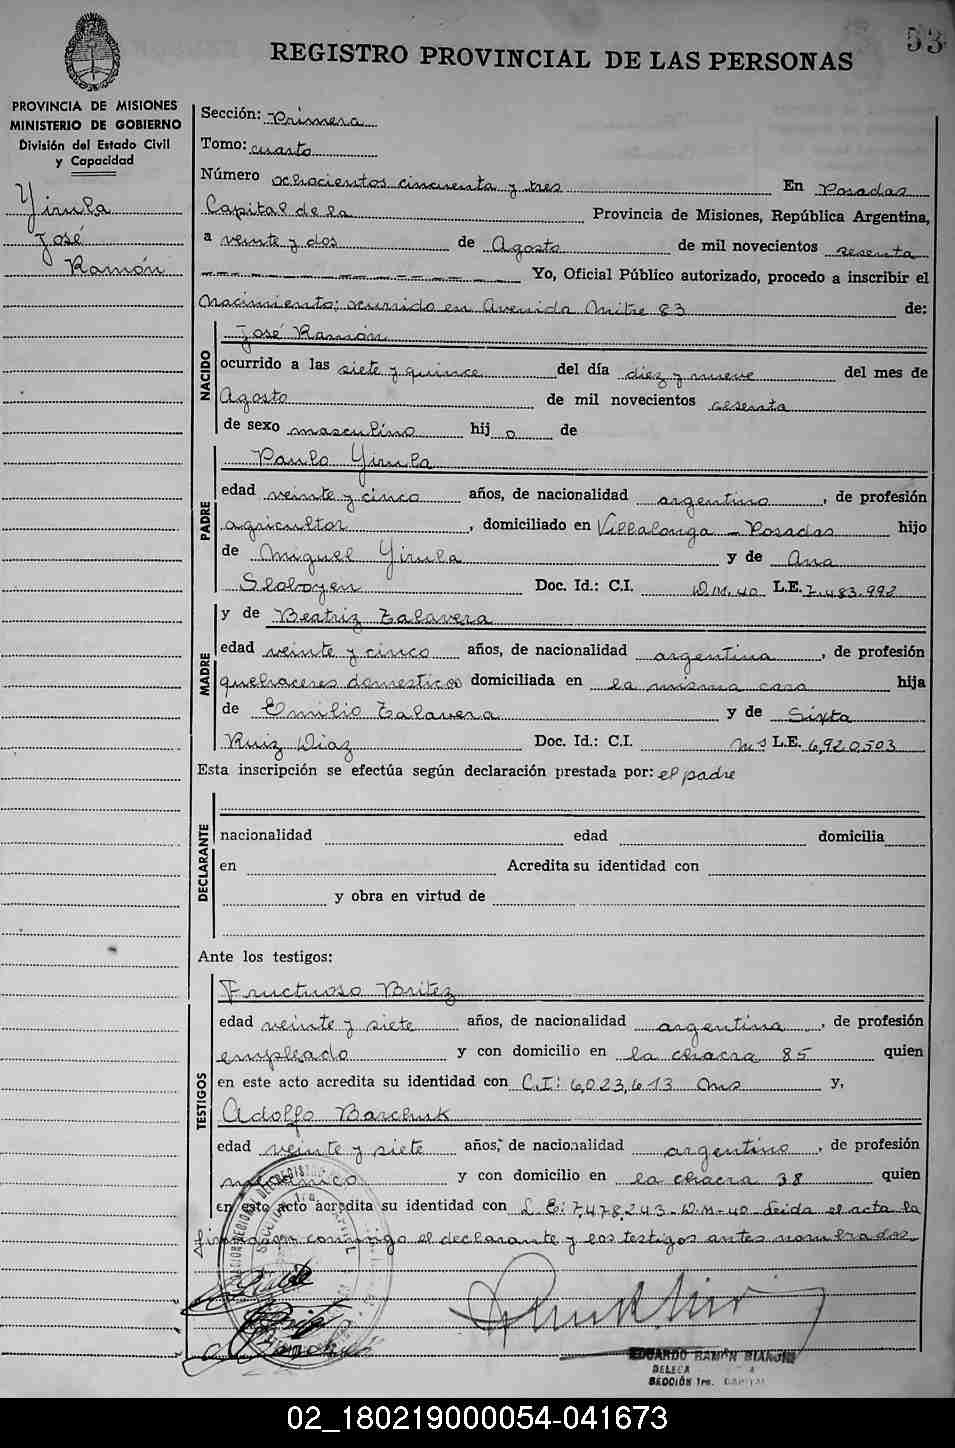 53
REGISTRO PROVINCIAL DE LAS PERSONAS
PROVINCIA DE MISIONES
MINISTERIO DE GOBIERNO
División del Estado Civil
y Capacidad
Yirula
José
Ramón
Sección: Primera
Tomo: cuarto
Número ochocientos cincuenta y tres En Posadas
Capital de la Provincia de Misiones, República Argentina,
a veinte y dos de Agosto de mil novecientos sesenta
Yo, Oficial Público autorizado, procedo a inscribir el
Nacimiento; ocurrido en Avenida Mitre 83 de:
NACIDO
José Ramón
ocurrido a las siete y quince del día diez y nueve del mes de
Agosto de mil novecientos sesenta
de sexo masculino hijo de
PADRE
Paulo Yirula
edad veinte y cinco años, de nacionalidad argentino, de profesión
agricultor, domiciliado en Villalonga - Posadas hijo
de Miguel Yirula y de Ana
Sloboyen Doc. Id.: C.I. D.M. 40 L.E. 7.483.992
MADRE
y de Beatriz Zalavera
edad veinte y cinco años, de nacionalidad argentina, de profesión
quehaceres domesticos domiciliada en la misma casa hija
de Emilio Zalavera y de Sixta
Ruiz Diaz Doc. Id.: C.I. Ms L.E. 6,920,503
Esta inscripción se efectúa según declaración prestada por: el padre
DECLARANTE
nacionalidad edad domicilia
en Acredita su identidad con
y obra en virtud de
Ante los testigos:
TESTIGOS
Fructuoso Britez
edad veinte y siete años, de nacionalidad argentina, de profesión
empleado y con domicilio en la chacra 85 quien
en este acto acredita su identidad con C.I: 6,023,613 Ms y,
Adolfo Barchuk
edad veinte y siete años, de nacionalidad argentino, de profesión
mecánico y con domicilio en la chacra 38 quien
en esto acto acredita su identidad con L.E: 7,478,243 D.M-40 Leida el acta la
firman conmigo el declarante y los testigos antes nombrados.
EDUARDO RAMÓN BIANCHI
SECCIÓN 1ra. CAPITAL
02_180219000054-041673